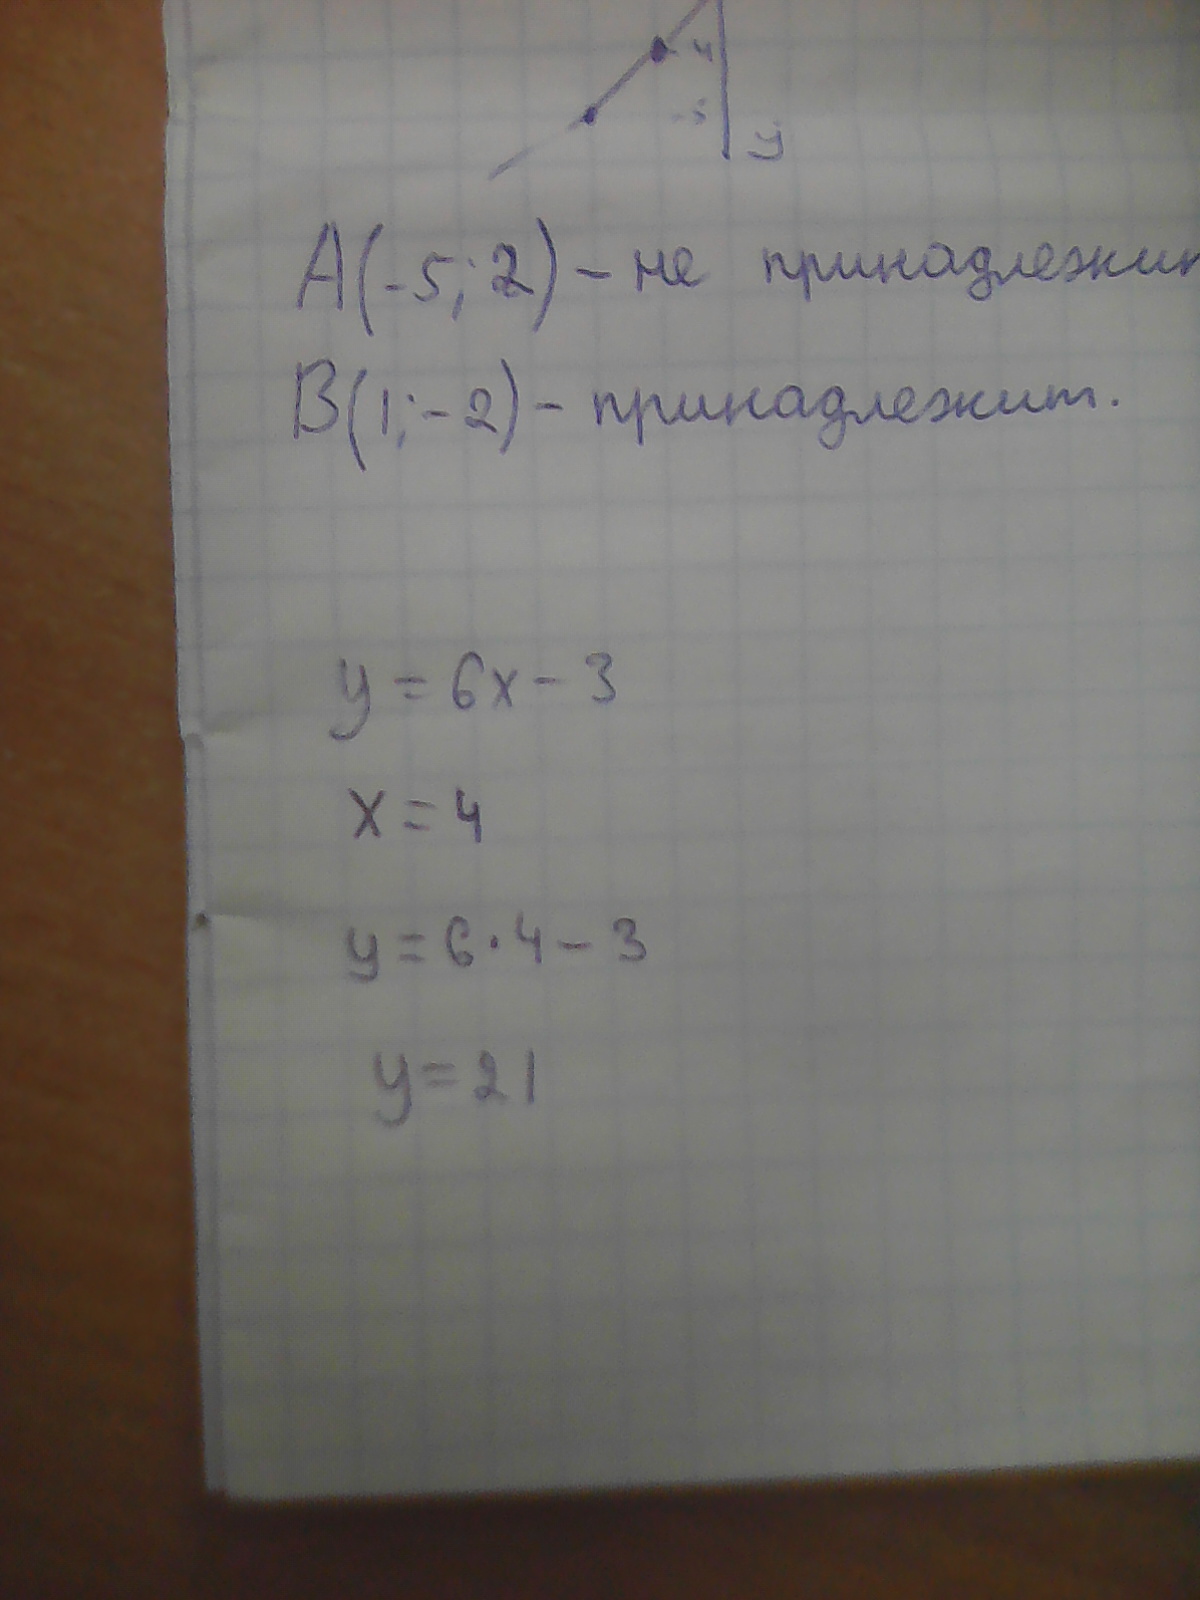 -4
-5
y
A(-5; 2) - не принадлежит
B(1; -2) - принадлежит.
y = 6x - 3
x = 4
y = 6 · 4 - 3
y = 21